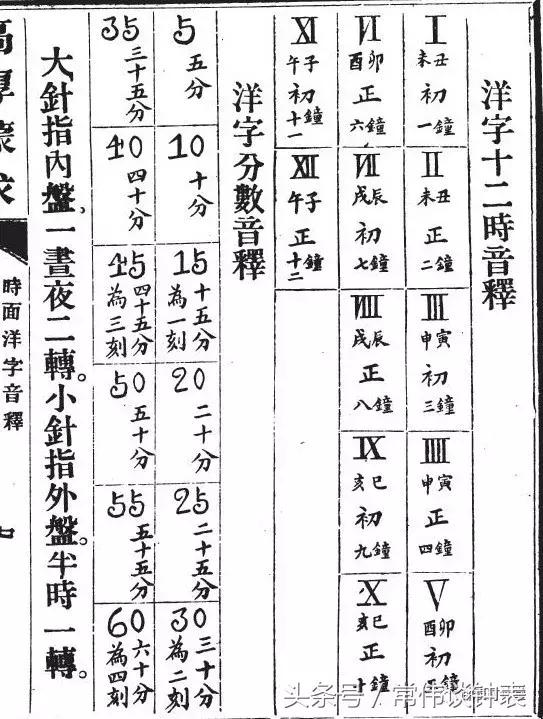 洋字十二時音釋
I 丑未初鐘一
II 丑未正鐘二
III 寅申初鐘三
IIII 寅申正鐘四
V 卯酉初鐘五
VI 卯酉正鐘六
VII 辰戌初鐘七
VIII 辰戌正鐘八
IX 巳亥初鐘九
X 巳亥正鐘十
XI 子午初鐘十一
XII 子午正鐘十二
洋字分數音釋
5 五分
10 十分
15 十五分為一刻
20 二十分
25 二十五分
30 三十分為二刻
35 三十五分
40 四十分
45 四十五分為三刻
50 五十分
55 五十五分
60 六十分為四刻
大針指內盤。一晝夜二轉。小針指外盤。半時一轉。
高厚蒙求
時面洋字音釋
头条号 / 常伟谈钟表